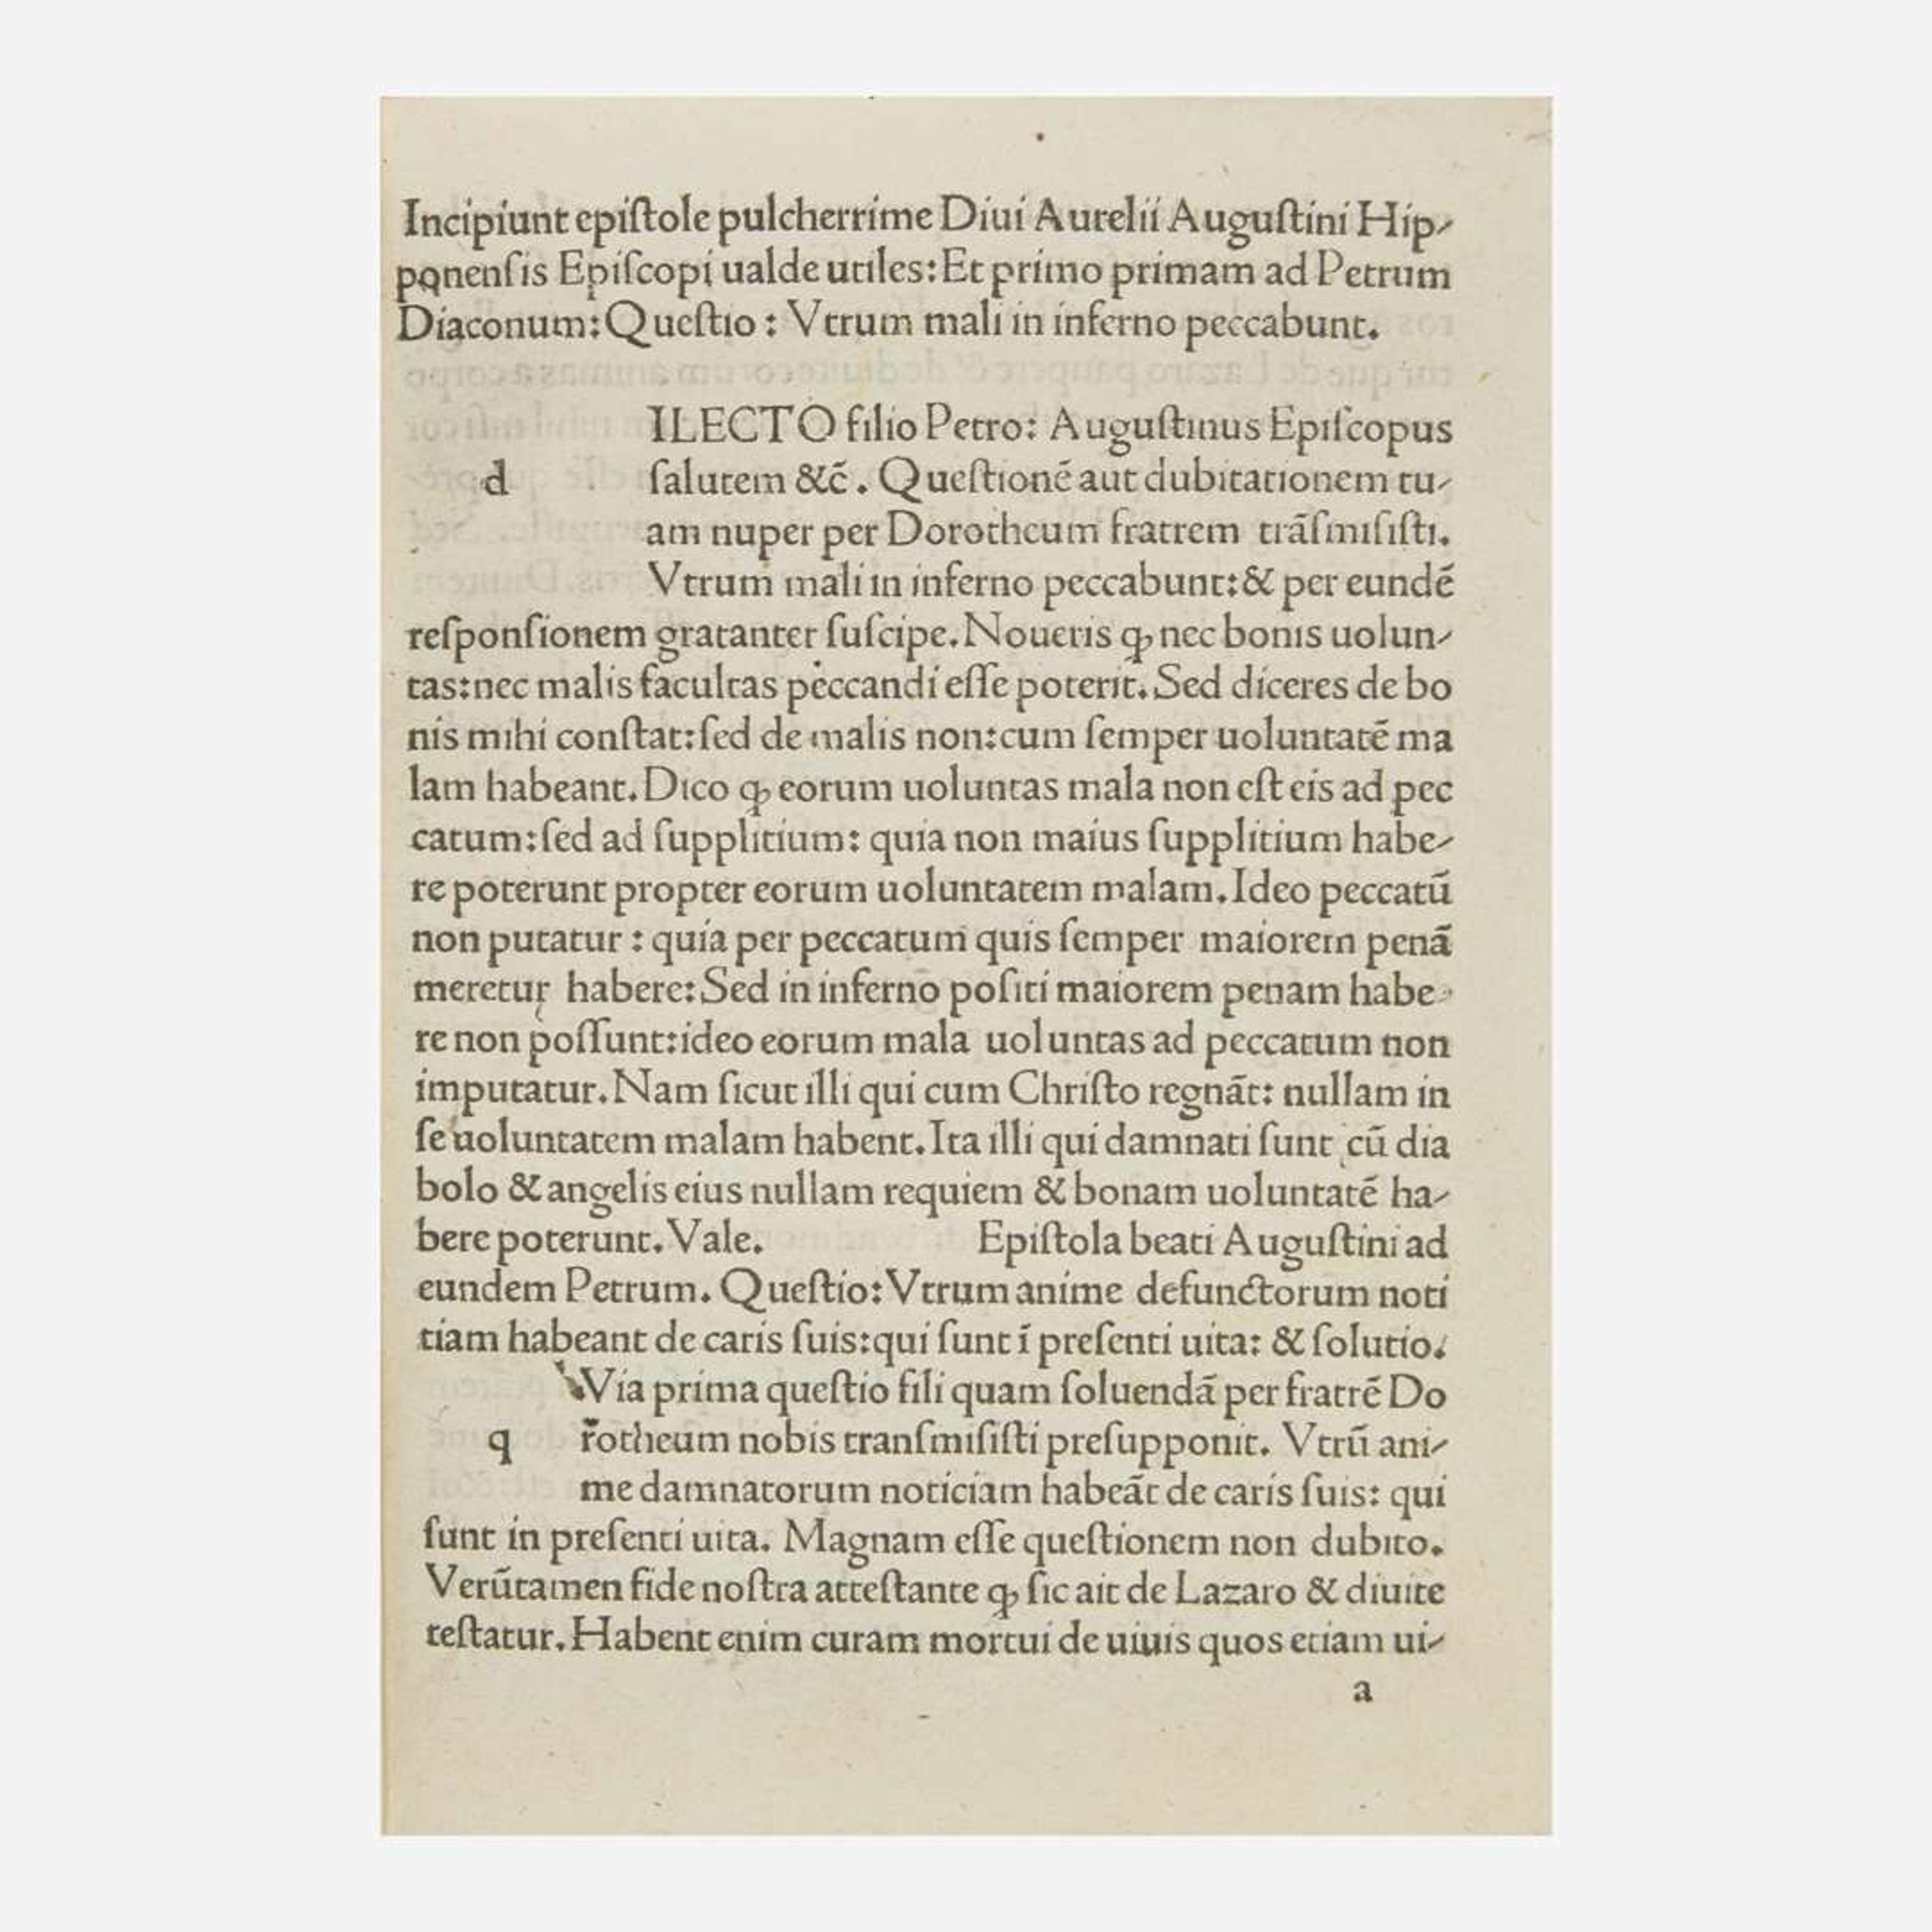 Incipiunt epiſtole pulcherrime Diui Aurelii Auguſtini Hip⸗
ponenſis Epiſcopi ualde utiles: Et primo primam ad Petrum
Diaconum: Queſtio : Vtrum mali in inferno peccabunt.
ILECTO filio Petro: Auguſtinus Epiſcopus
d ſalutem &c̄. Queſtionē aut dubitationem tu⸗
am nuper per Dorotheum fratrem trãſmiſiſti.
Vtrum mali in inferno peccabunt: & per eundē
reſponſionem gratanter ſuſcipe. Noueris ꝙ nec bonis uolun⸗
tas: nec malis facultas peccandi eſſe poterit. Sed diceres de bo
nis mihi conſtat: ſed de malis non: cum ſemper uoluntatē ma
lam habeant. Dico ꝙ eorum uoluntas mala non eſt eis ad pec
catum: ſed ad ſupplitium: quia non maius ſupplitium habe⸗
re poterunt propter eorum uoluntatem malam. Ideo peccatū
non putatur : quia per peccatum quis ſemper maiorem penã
meretur habere: Sed in inferno poſiti maiorem penam habe⸗
re non poſſunt: ideo eorum mala uoluntas ad peccatum non
imputatur. Nam ſicut illi qui cum Chriſto regnãt: nullam in
ſe uoluntatem malam habent. Ita illi qui damnati ſunt cū dia
bolo & angelis eius nullam requiem & bonam uoluntatē ha⸗
bere poterunt. Vale. Epiſtola beati Auguſtini ad
eundem Petrum. Queſtio: Vtrum anime defunctorum noti
tiam habeant de caris ſuis: qui ſunt ī preſenti uita: & ſolutio.
Via prima queſtio fili quam ſoluendã per fratrē Do
q rotheum nobis tranſmiſiſti preſupponit. Vtrū ani⸗
me damnatorum noticiam habeãt de caris ſuis: qui
ſunt in preſenti uita. Magnam eſſe queſtionem non dubito.
Verūtamen fide noſtra atteſtante ꝙ ſic ait de Lazaro & diuite
teſtatur. Habent enim curam mortui de uiuis quos etiam ui⸗
a